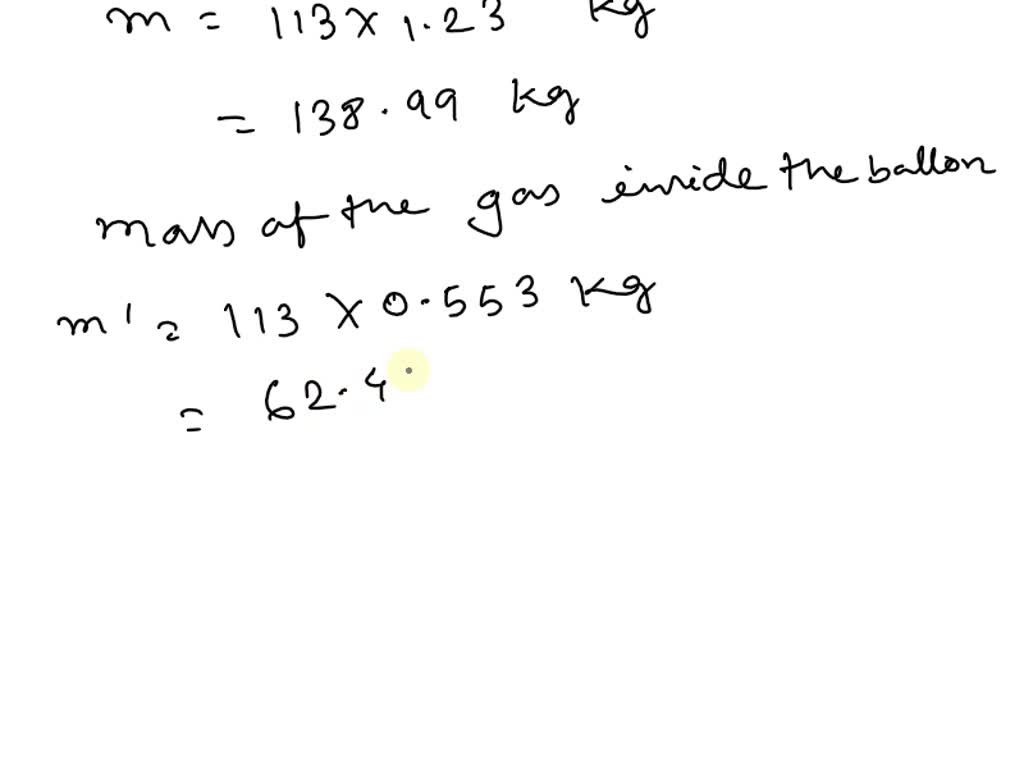 m = 113 x 1.23 kg
= 138.99 kg
mass of the gas inside the ballon
m' = 113 x 0.553 kg
= 62.4